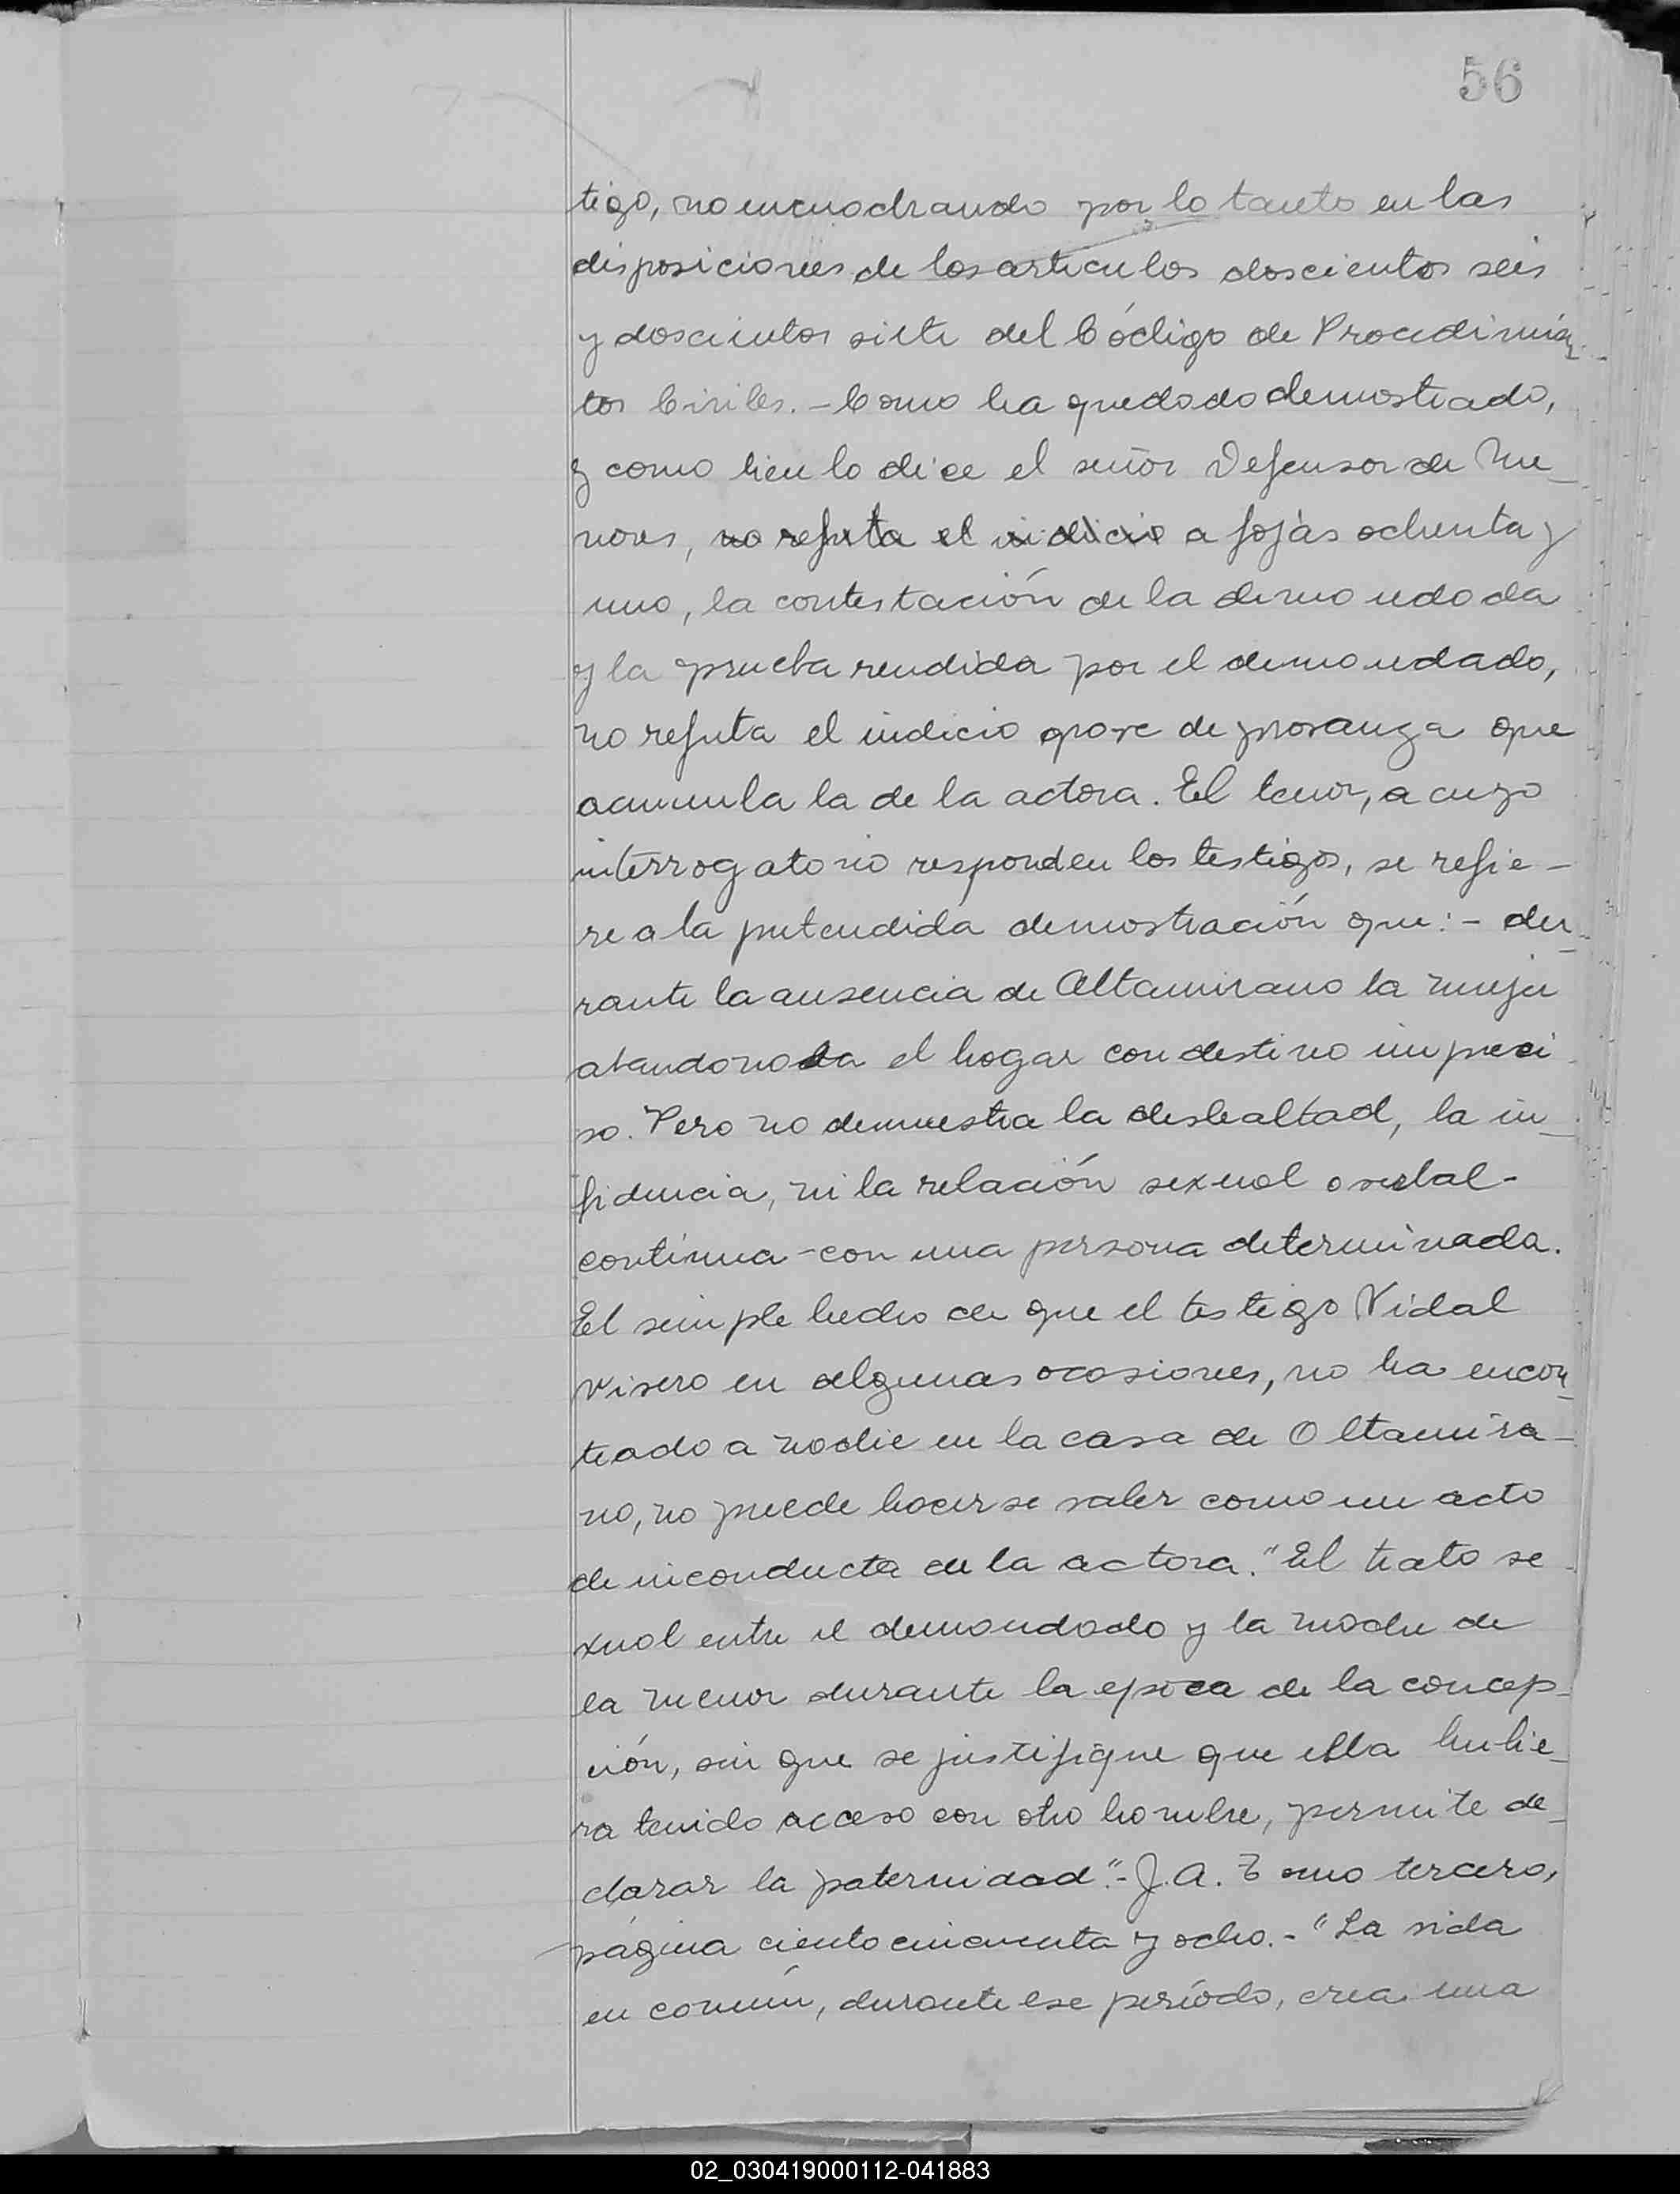 56
tigo, no encuadrando por lo tanto en las
disposiciones de los artículos doscientos seis
y doscientos siete del Código de Procedimien
tos Civiles.- Como ha quedado demostrado,
y como bien lo dice el señor Defensor de Me-
nores, no refuta el indicio a fojas ochenta y
uno, la contestación de la demandada
y la prueba rendida por el demandado,
no refuta el indicio grave de provanza que
acumula la de la actora. El tenor, a cuyo
interrogatorio responden los testigos, se refie-
re a la pretendida demostración que:- du-
rante la ausencia de Altamirano la mujer
abandonaba el hogar con destino impreci
so. Pero no demuestra la deslealtad, la in-
fidencia, ni la relación sexual
continua - con una persona determinada.
El simple hecho de que el testigo Vidal
Visero en algunas ocasiones, no ha encon-
trado a nadie en la casa de Altamira-
no, no puede hacerse valer como un acto
de inconducta en la actora. "El trato se-
xual entre el demandado y la madre de
la menor durante la epoca de la concep-
ción, sin que se justifique que ella hubie-
ra tenido acceso con otro hombre, permite de-
clarar la paternidad".- J. A. Tomo tercero,
página ciento cincuenta y ocho.- "La vida
en común, durante ese período, crea una
02_030419000112-041883